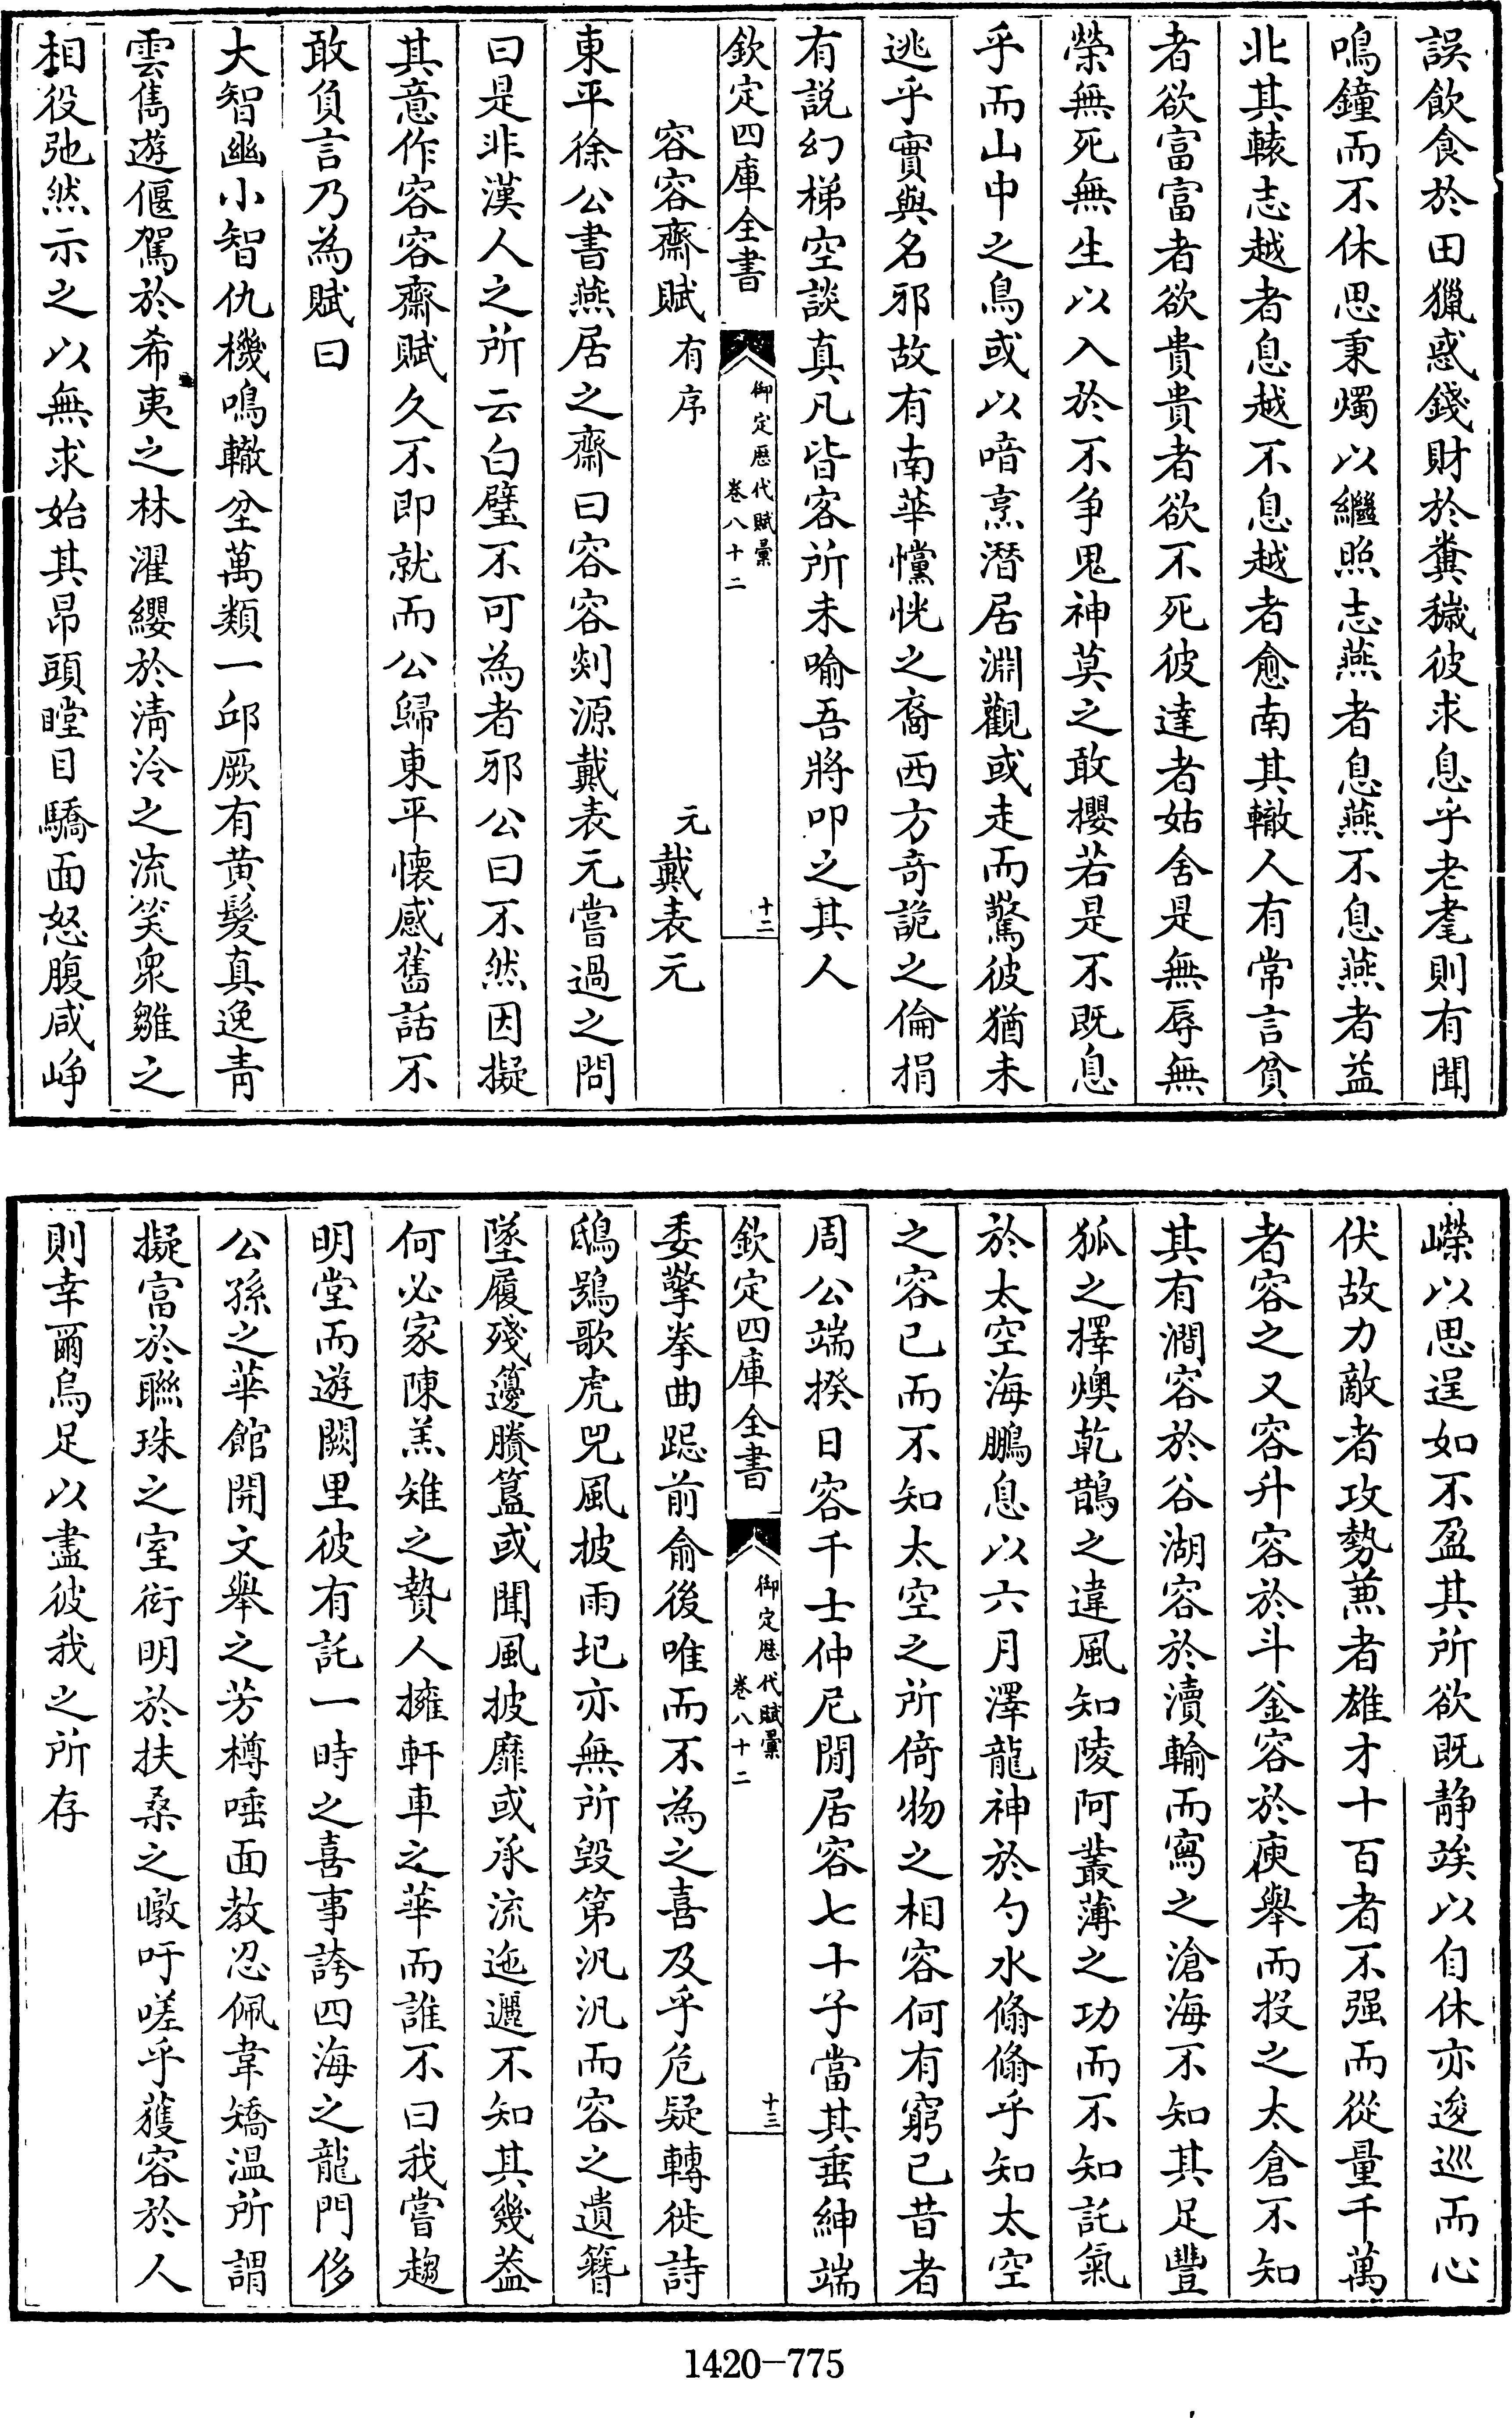 誤飲食於田獵惑錢財於糞穢彼求息乎老耄則有聞
鳴鐘而不休思秉燭以繼照志燕者息燕不息燕者益
北其轅志越者息越不息越者愈南其轍人有常言貧
者欲富富者欲貴貴者欲不死彼達者姑舍是無辱無
榮無死無生以入於不爭鬼神莫之敢攖若是不既息
乎而山中之鳥或以喑烹潛居淵觀或走而驚彼猶未
逃乎實與名邪故有南華儻恍之裔西方奇詭之倫捐
有説幻梯空談真凡皆客所未喻吾將叩之其人
欽定四庫全書
御定歷代賦彙
卷八十二
十二
容容齋賦 有序
元 戴表元
東平徐公書燕居之齋曰容容剡源戴表元嘗過之問
曰是非漢人之所云白璧不可為者邪公曰不然因擬
其意作容容齋賦久不即就而公歸東平懷感舊話不
敢負言乃為賦曰
大智幽小智仇機鳴轍坌萬類一邱厥有黄髮真逸青
雲雋遊偃駕於希夷之林濯纓於清泠之流笑衆雛之
相役弛然示之以無求始其昂頭瞠目驕面怒腹咸崢
嶸以思逞如不盈其所欲既静竢以自休亦逡巡而心
伏故力敵者攻勢兼者雄才十百者不强而從量千萬
者容之又容升容於斗釜容於庾舉而投之太倉不知
其有澗容於谷湖容於瀆輸而寫之滄海不知其足豐
狐之擇燠乾鵲之違風知陵阿叢薄之功而不知託氣
於太空海鵬息以六月澤龍神於勺水翛翛乎知太空
之容已而不知太空之所倚物之相容何有窮已昔者
周公端揆日容千士仲尼閒居容七十子當其垂紳端
欽定四庫全書
御定歷代賦彙
卷八十二
十三
委擎拳曲跽前俞後唯而不為之喜及乎危疑轉徙詩
鴟鴞歌虎兕風披雨圮亦無所毀第汎汎而容之遺簪
墜履殘籩賸簋或聞風披靡或承流迤邐不知其幾葢
何必家陳羔雉之贄人擁軒車之華而誰不曰我嘗趨
明堂而遊闕里彼有託一時之喜事誇四海之龍門侈
公孫之華館開文舉之芳樽唾面教忍佩韋矯温所謂
擬富於聯珠之室衒明於扶桑之暾吁嗟乎蒦容於人
則幸爾烏足以盡彼我之所存
1420-775